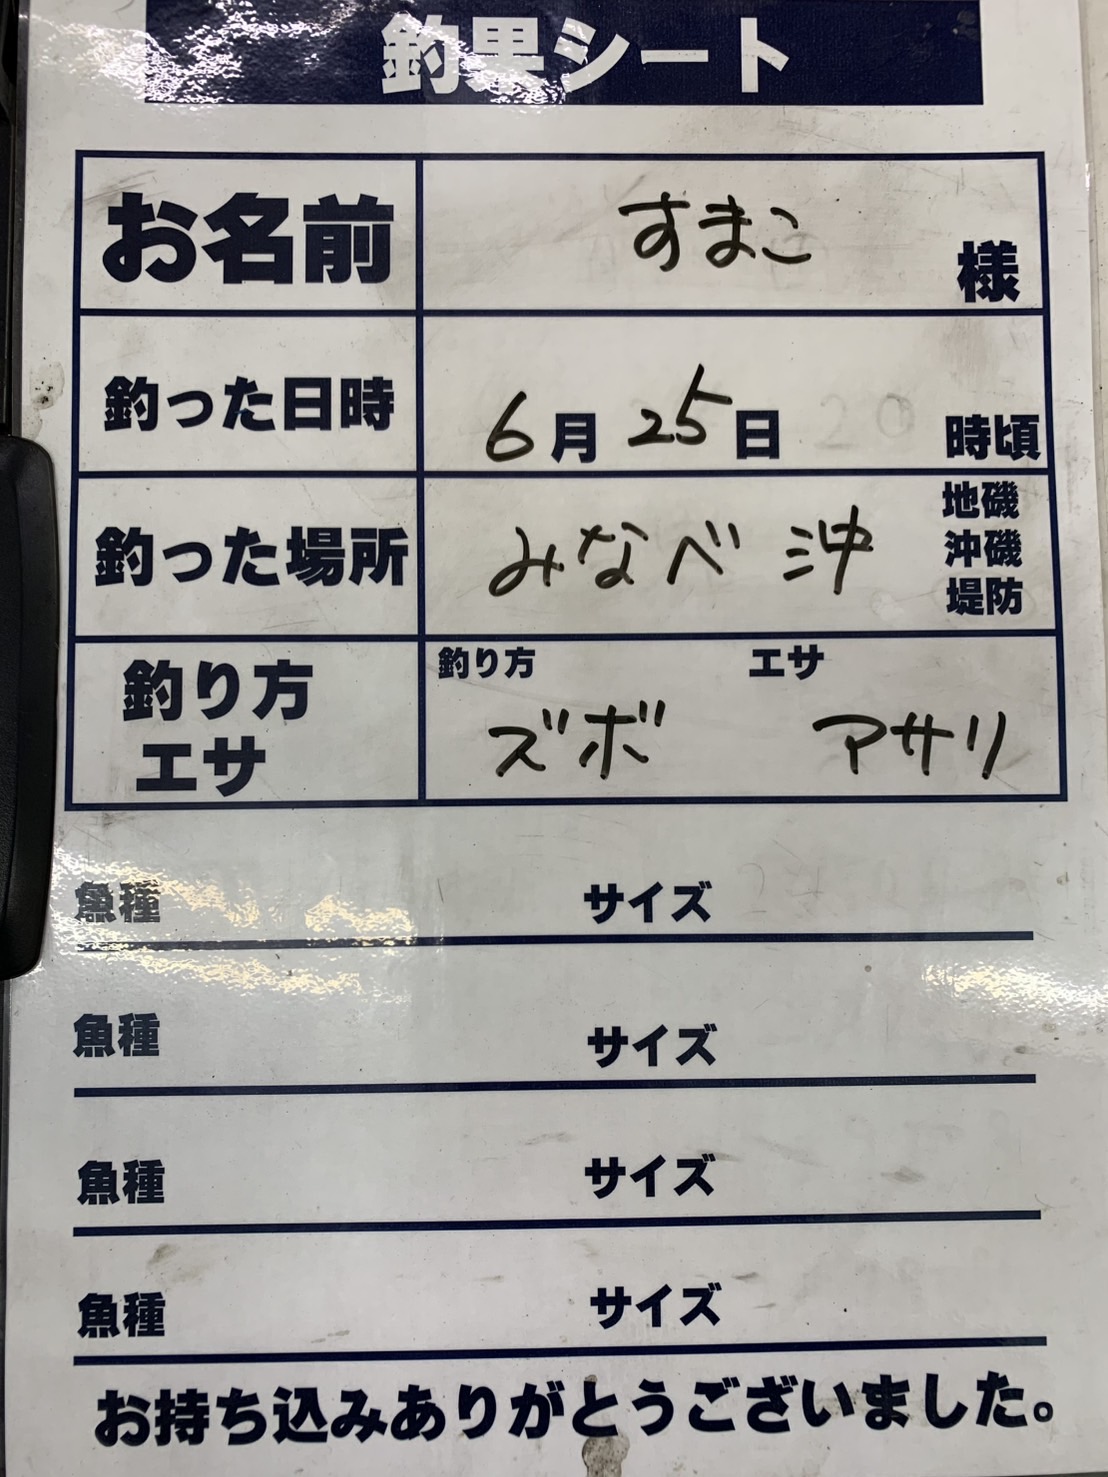 釣果シート
お名前 すまこ 様
釣った日時 6月25日 時頃
釣った場所 みなべ 沖 地磯
沖磯
堤防
釣り方 エサ
釣り方
エサ
ズボ アサリ
魚種 サイズ
魚種 サイズ
魚種 サイズ
魚種 サイズ
お持ち込みありがとうございました。